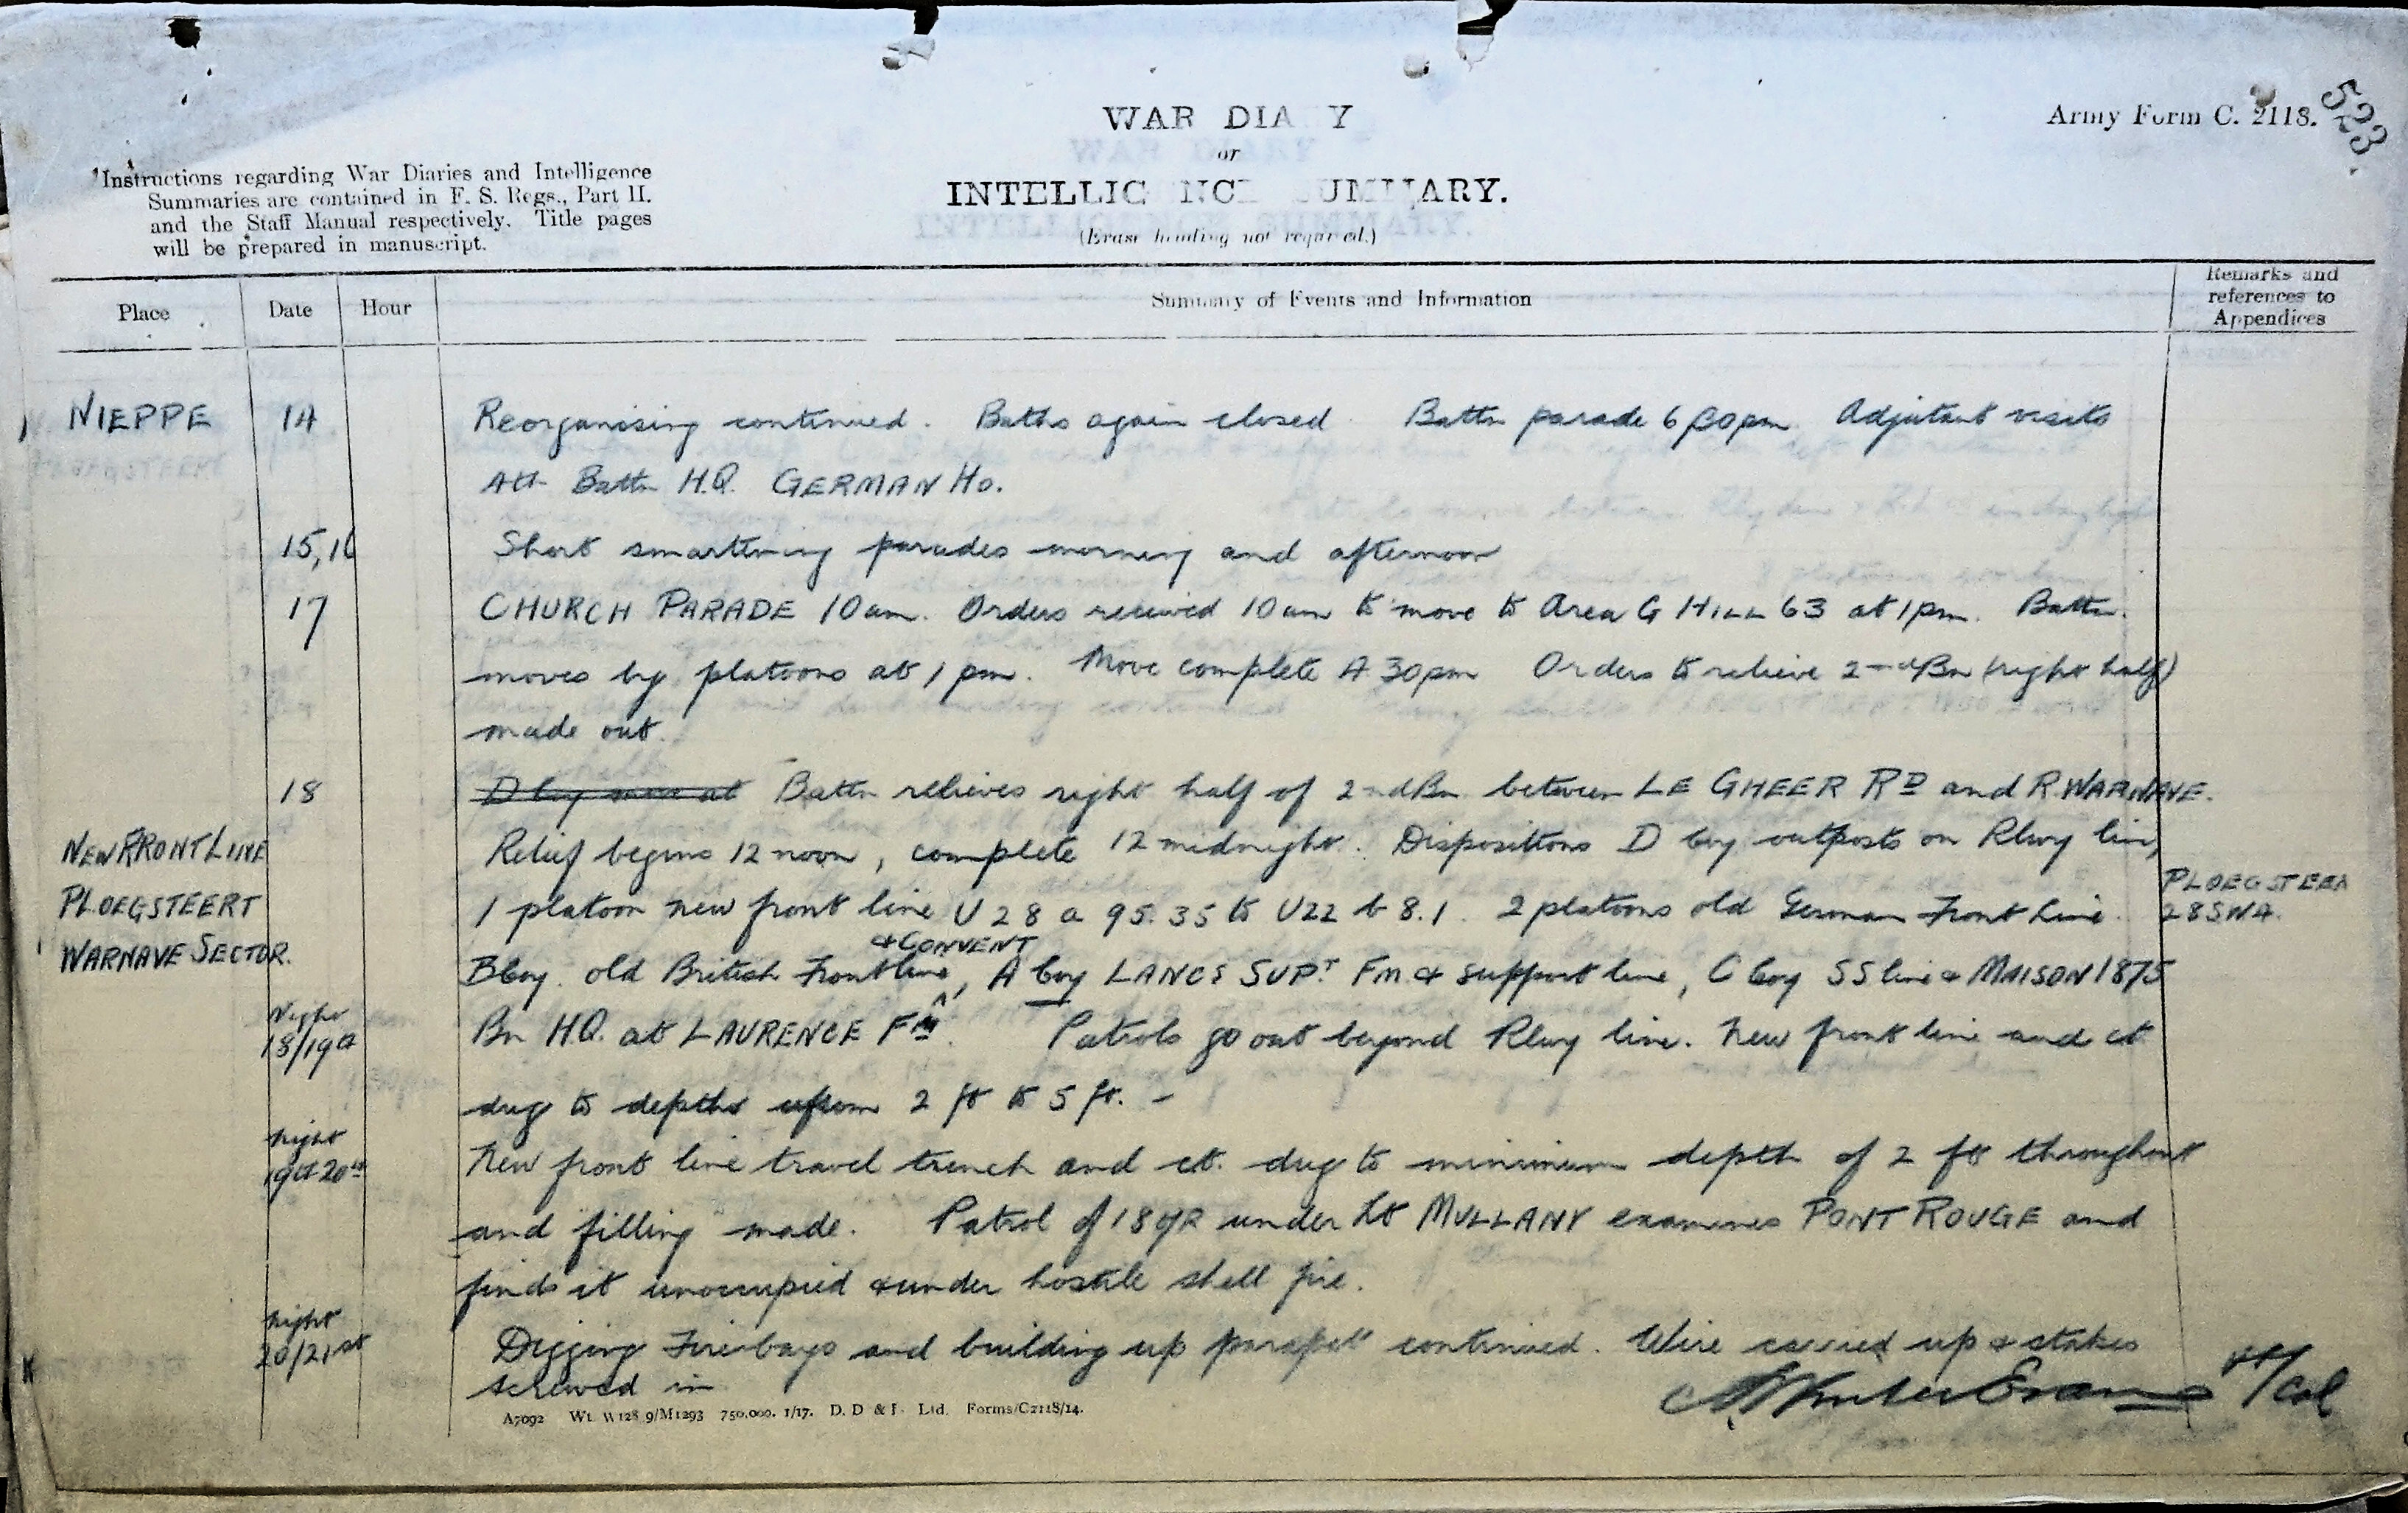 WAR DIA Y
or
INTELLIG NCE UMMARY.
(Erase heading not required.)
Army Form C. 2118.
523
Instructions regarding War Diaries and Intelligence
Summaries are contained in F. S. Regs., Part II.
and the Staff Manual respectively. Title pages
will be prepared in manuscript.
Place Date Hour Summary of Events and Information Remarks and references to Appendices
NIEPPE 14 Reorganising continued. Baths again closed Battn parade 6.30pm Adjutant visits
Battn H.Q. GERMAN HO.
15,16 Short smartening parades morning and afternoon
17 CHURCH PARADE 10am. Orders received 10am to move to Area G HILL 63 at 1pm. Battn.
moves by platoons at 1 pm. Move complete 4 30pm Orders to relieve 2nd Bn (right half)
made out.
18 Battn relieves right half of 2nd Bn between LE GHEER RD and R. WARNAVE.
NEW FRONT LINE Relief begins 12 noon, complete 12 midnight. Dispositions D Coy outposts on Rlwy line,
PLOEGSTEERT 1 platoon new front line U 28 a 95.35 to U22 b 8.1. 2 platoons old German Front Line. PLOEGSTEER
28SW4.
& CONVENT
WARNAVE SECTOR. B Coy. old British Frontline, A Coy LANCS SUPT FM. & support line, C Coy SS line & MAISON 1875
Night 18/19th Bn H.Q. at LAURENCE FM. Patrols go out beyond Rlwy line. New front line and ct
dug to depths from 2 ft to 5 ft. -
Night 19th 20th New front line travel trench and ct. dug to minimum depth of 2 ft throughout
and filling made. Patrol of 18 OR under Lt MULLANY examines PONT ROUGE and
finds it unoccupied & under hostile shell fire.
Night 20/21st Digging Firebays and building up parapet continued. Wire carried up & stakes
screwed in
Lt/Col
A7092 Wt. W128 9/M1293 750,000. 1/17. D. D & L. Ltd. Forms/C2118/14.